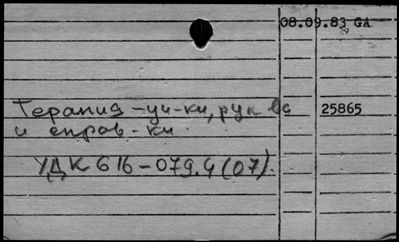 08.09.83 GA
Терапия-уч-ки, рук-ва 25865
и справ-ки.
УДК 616-079.4(07).